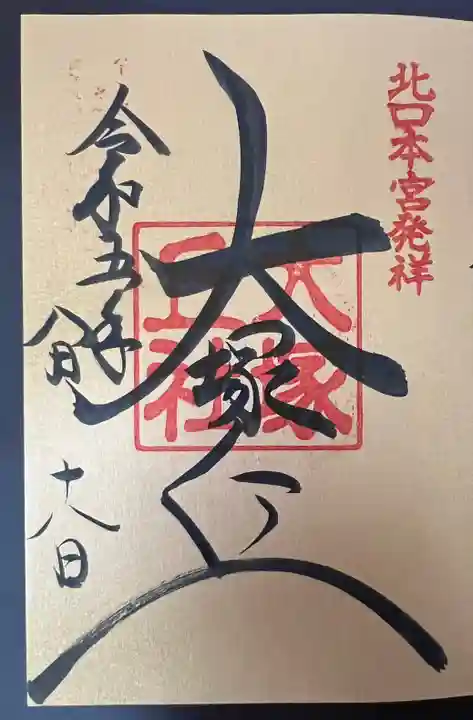 北口本宮発祥
大塚丘
大塚
丘社
令和五年
八月
十八日